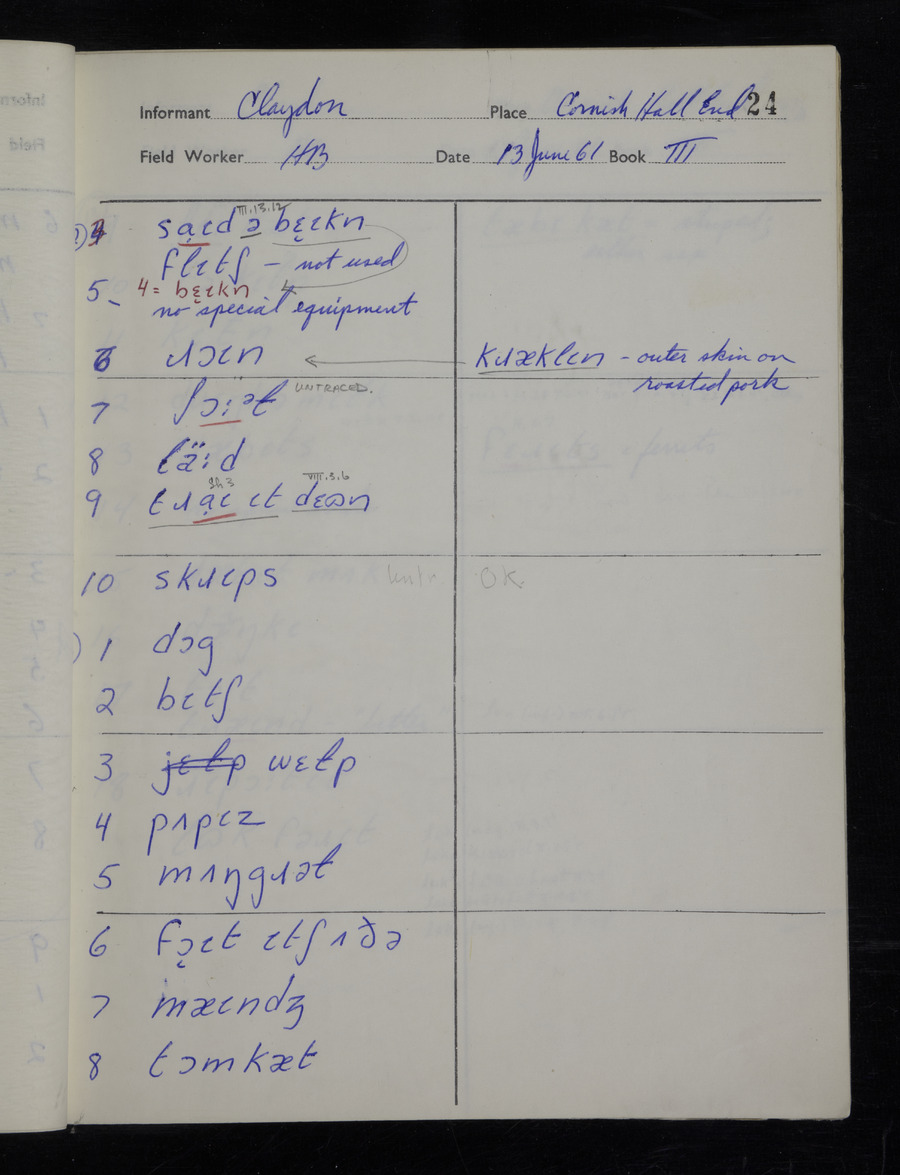 Informant Claydon Place Cornish Hall End 24
Field Worker HB Date 13 June 61 Book III
III.13.12
sa̜ɩd ə bɛ̜ɩkn
flɩtʃ – not used
5 4 = bɛ̜ɩkn 4
no special equipment
6 ɹɔɩn ← kɹæklɩn – outer skin on
roasted pork
7 ʃɔ̈:əɫ UNTRACED.
8 lä:d
VIII.3.6
9 tɹa̜ɩ ɩt dɛʊn
10 skɹɩps OK
1 dɔg
2 bɩtʃ
3 jɛɫp wɛɫp
4 pʌpɩz
5 mʌŋgɹəɫ
6 fɔ̜ɩt ɩtʃ ʌðə
7 mæɩndʒ
8 tɔmkæt